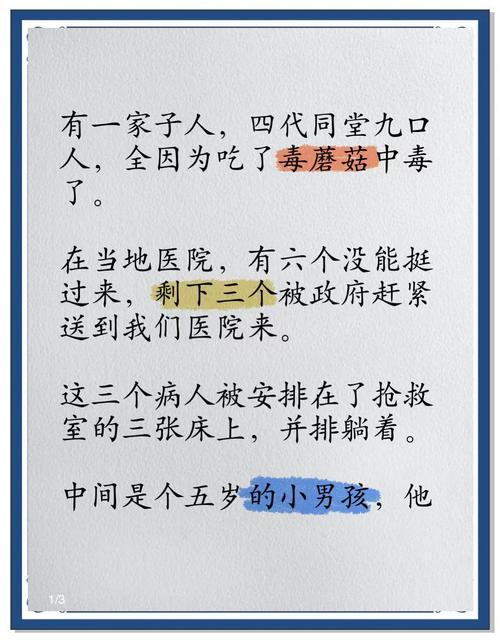 有一家子人，四代同堂九口
人，全因为吃了毒蘑菇中毒
了。
在当地医院，有六个没能挺
过来，剩下三个被政府赶紧
送到我们医院来。
这三个病人被安排在了抢救
室的三张床上，并排躺着。
中间是个五岁的小男孩，他
1/3